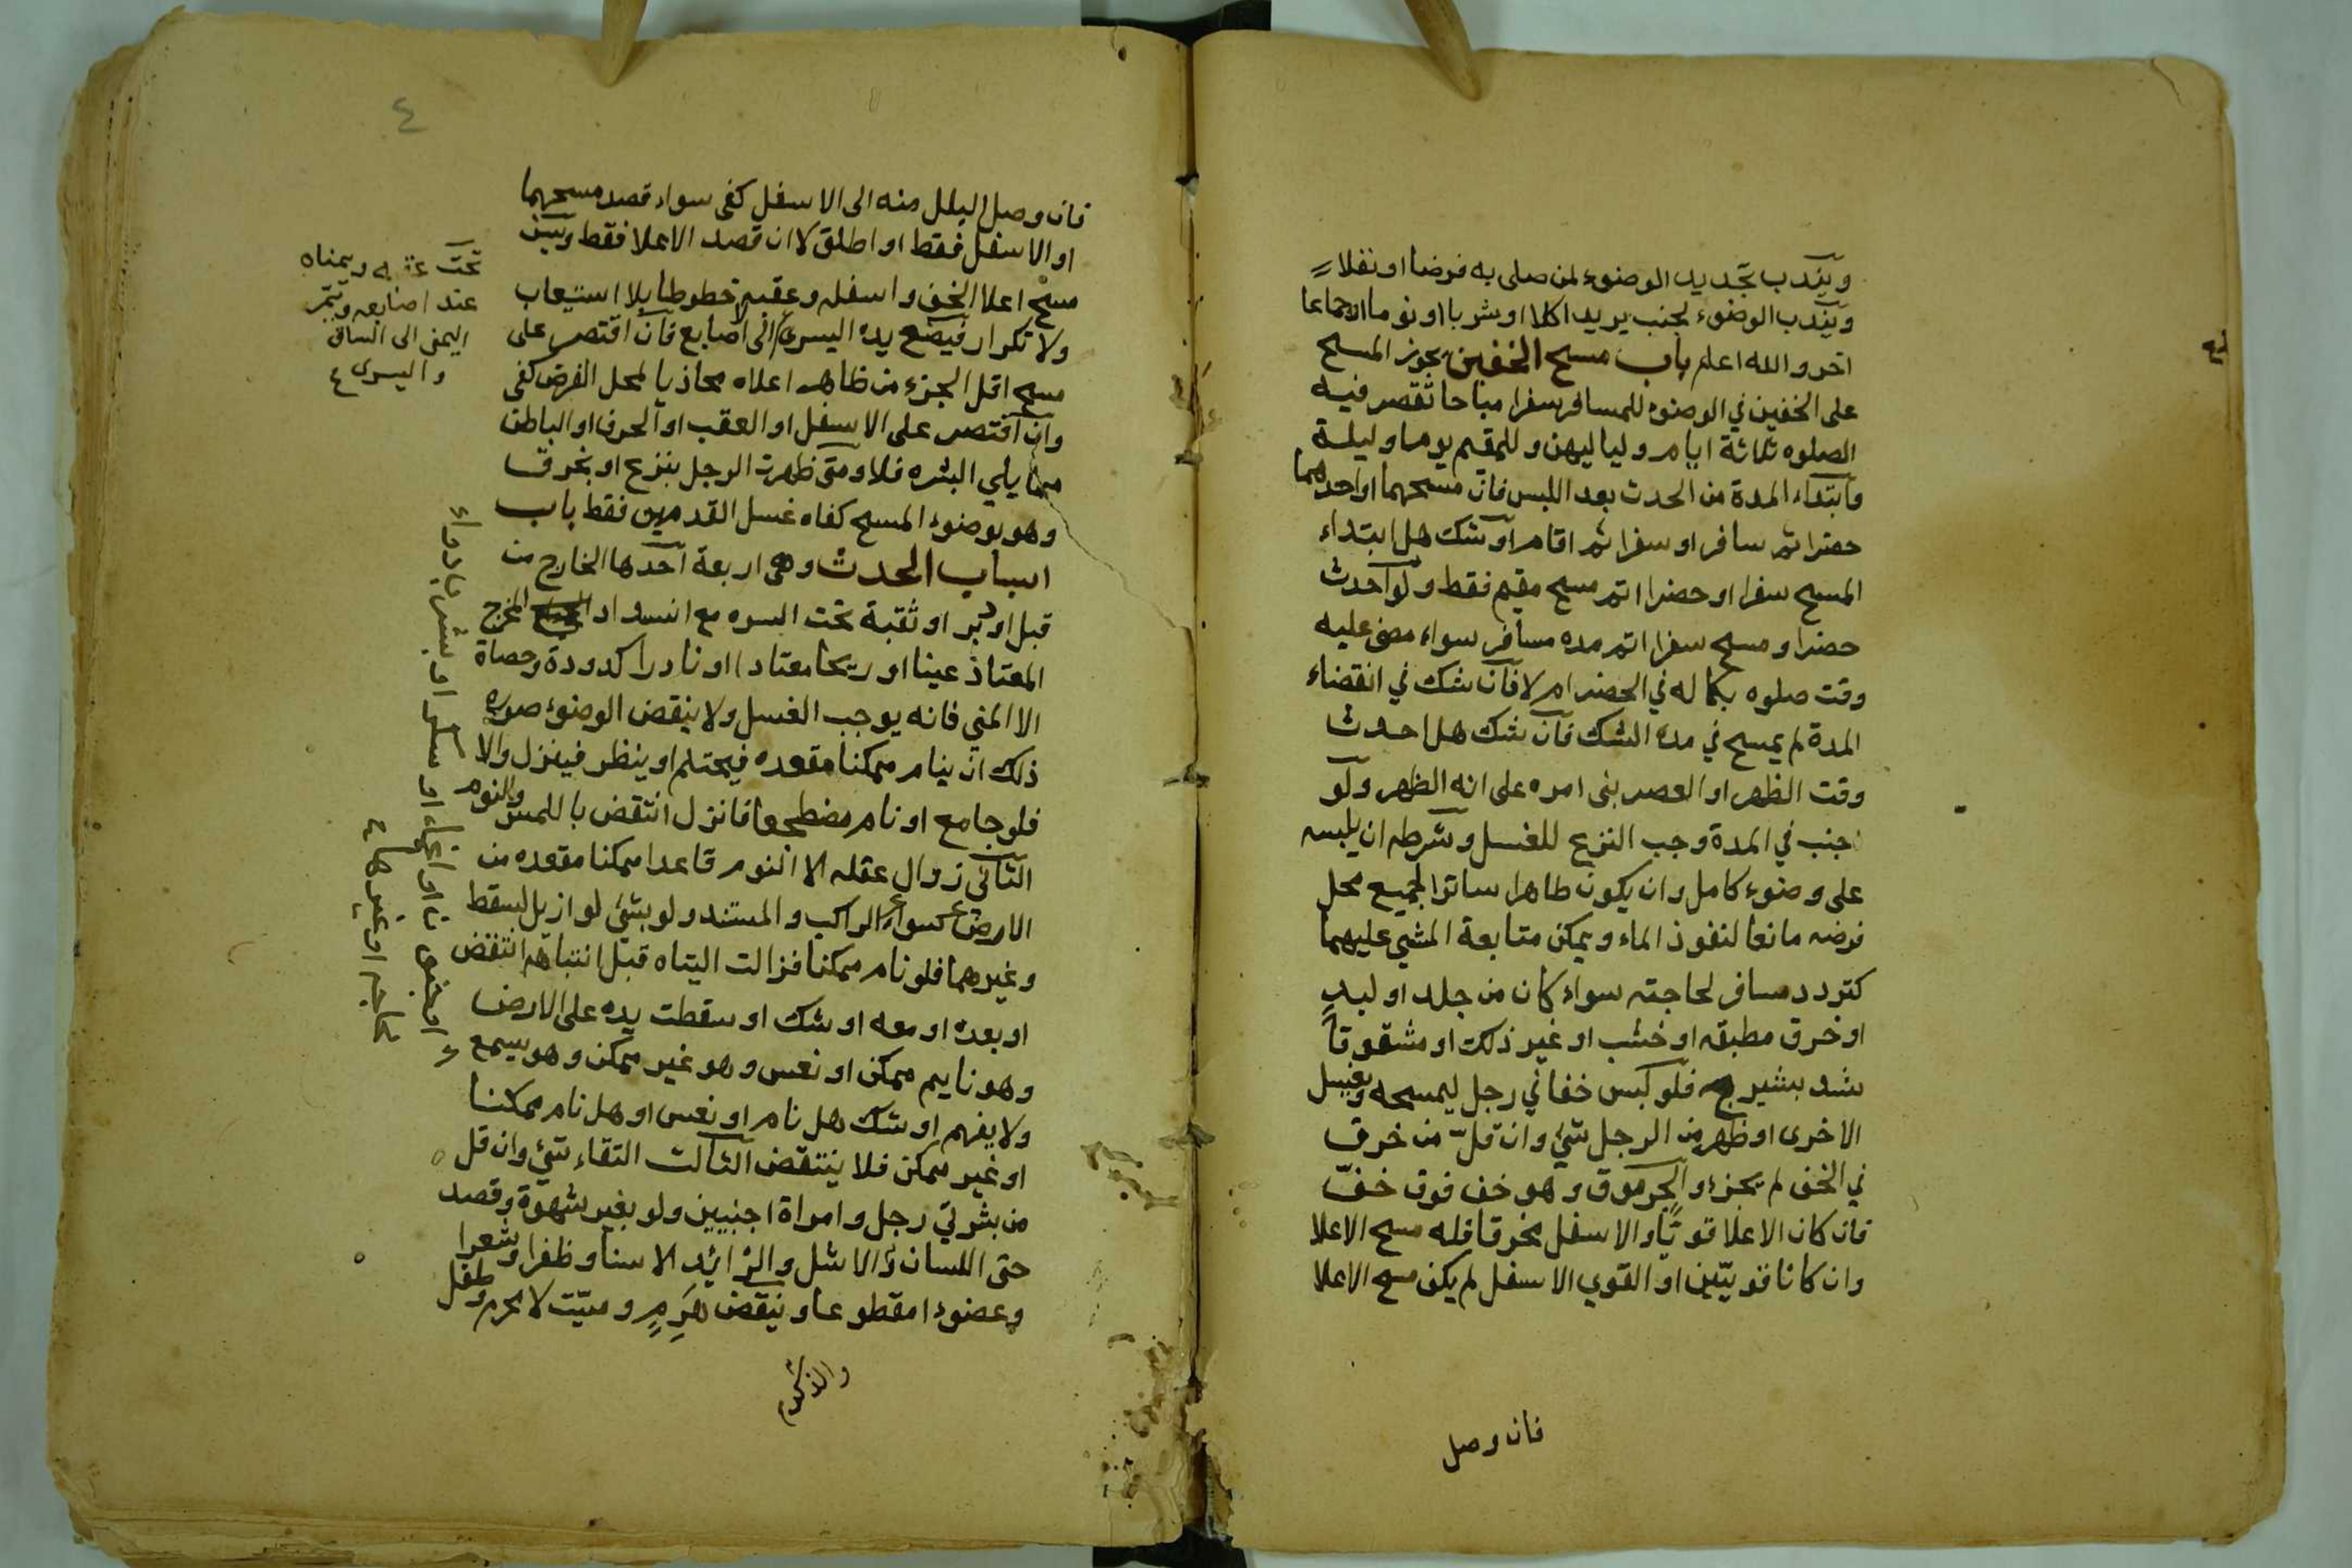 ويندب تجديد الوضوء لمن صلى به فرضا او نفلا
ويندب الوضوء لجنب يريد اكلا او شربا او نوما او جماعا
اخر والله اعلم باب مسح الخفين يجوز المسح
على الخفين في الوضوء للمسافر سفرا مباحا تقصر فيه
الصلوه ثلاثة ايام ولياليهن وللمقيم يوما وليلة
وابتداء المدة من الحدث بعد اللبس فان مسحهما او احدهما
حضرا ثم سافر او سفرا ثم اقام او شك هل ابتداء
المسح سفرا او حضرا اتم مسح مقيم فقط ولو احدث
حضرا ومسح سفرا اتم مده مسافر سواء مضى عليه
وقت صلوه بكماله في الحضر ام لا فان شك في انقضاء
المدة لم يمسح في مده الشك فان شك هل احدث
وقت الظهر او العصر بنى امره على انه الظهر ولو
اجنب في المدة وجب النزع للغسل وشرطه ان يلبسه
على وضوء كامل وان يكون طاهرا ساترا لجميع محل
فرضه مانعا لنفوذ الماء ويمكن متابعة المشي عليهما
كتردد مسافر لحاجته سواء كان من جلد او لبد
او خرق مطبقه او خشب او غير ذلك او مشقوقا
شد بشرج فلو لبس خفا في رجل ليمسحه ويغسل
الاخرى او ظهر من الرجل شئ وان قل من خرق
في الخف لم يجزء والجرموق وهو خف فوق خف
فان كان الاعلا قويا والاسفل مخرقا فله مسح الاعلا
وان كانا قويين او القوي الاسفل لم يكف مسح الاعلا
فان وصل
٤
فان وصل البلل منه الى الاسفل كفى سواء قصد مسحهما
او الاسفل فقط او اطلق لا ان قصد الاعلا فقط ويسن
مسح اعلا الخف واسفله وعقبه خطوطا بلا استيعاب
ولا تكرار فيضع يده اليسرى الى الاصابع فان اقتصر على
مسح اقل الجزء من ظاهر اعلاه محاذيا لمحل الفرض كفى
وان اقتصر على الاسفل او العقب او الحرف او الباطن
مما يلي البشره فلا ومتى ظهرت الرجل بنزع او بخرق
وهو بوضوء المسح كفاه غسل القدمين فقط باب
اسباب الحدث وهي اربعة احدها الخارج من
قبل او دبر او ثقبة تحت السره مع انسداد المخرج
المعتاد عينا او ريحا معتادا او نادرا كدودة وحصاة
الا المني فانه يوجب الغسل ولا ينقض الوضوء صوره
ذلك ان ينام ممكنا مقعده فيحتلم او ينظر فينزل والا
فلو جامع او نام مضطجعا فانزل انتقض باللمس والنوم
الثاني زوال عقله الا النوم قاعدا ممكنا مقعده من
الارض سواء الراكب والمستند ولو بشئ لو ازيل لسقط
وغيرهما فلو نام ممكنا فزالت اليتاه قبل انتباهه انتقض
او بعده او معه او شك او سقطت يده على الارض
وهو نايم ممكن او نعس وهو غير ممكن وهو يسمع
ولا يفهم او شك هل نام او نعس او هل نام ممكنا
او غير ممكن فلا ينتقض الثالث التقاء شئ وان قل
من بشرتي رجل وامراة اجنبيين ولو بغير شهوة وقصد
حتى اللسان والاشل والزائد الا سنا وظفرا وشعرا
وعضوءا مقطوعا وينقض هرم وميت لا محرم وطفل
تحت عقبه ويمناه
عند اصابعه ويمر
اليمنى الى الساق
واليسرى